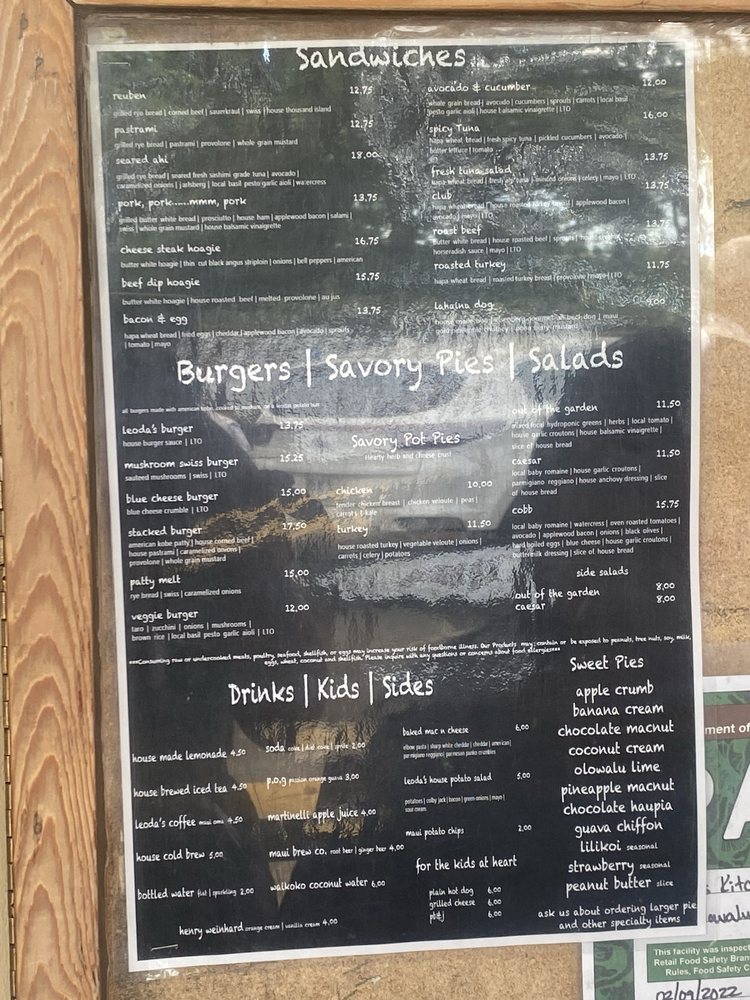 Sandwiches
reuben 12.75
grilled rye bread | corned beef | sauerkraut | swiss | house thousand island
pastrami 12.75
grilled rye bread | pastrami | provolone | whole grain mustard
seared ahi 18.00
grilled rye bread | seared fresh sashimi grade tuna | avocado |
caramelized onions | jarlsberg | local basil pesto garlic aioli | watercress
pork, pork.....mmm, pork 13.75
grilled butter white bread | prosciutto | house ham | applewood bacon | salami |
swiss | whole grain mustard | house balsamic vinaigrette
cheese steak hoagie 16.75
butter white hoagie | thin cut black angus striploin | onions | bell peppers | american
beef dip hoagie 15.75
butter white hoagie | house roasted beef | melted provolone | au jus
bacon & egg 13.75
hapa wheat bread | fried eggs | cheddar | applewood bacon | avocado | sprouts
| tomato | mayo
avocado & cucumber 12.00
whole grain bread | avocado | cucumbers | sprouts | carrots | local basil
pesto garlic aioli | house balsamic vinaigrette | LTO
spicy Tuna 16.00
hapa wheat bread | fresh spicy tuna | pickled cucumbers | avocado |
butter lettuce | tomato
fresh tuna salad 13.75
hapa wheat bread | fresh ahi tuna | minced onions | celery | mayo | LTO
club 13.75
hapa wheat bread | house roasted turkey breast | applewood bacon |
avocado | mayo | LTO
roast beef 13.75
butter white bread | house roasted beef | sprouts | house
horseradish sauce | mayo | LTO
roasted turkey 11.75
hapa wheat bread | roasted turkey breast | provolone | mayo | LTO
lahaina dog 9.00
Burgers | Savory Pies | Salads
leoda's burger 13.75
house burger sauce | LTO
mushroom swiss burger 15.25
sauteed mushrooms | swiss | LTO
blue cheese burger 15.00
blue cheese crumble | LTO
stacked burger 17.50
american kobe patty | house corned beef |
house pastrami | caramelized onions |
provolone | whole grain mustard
patty melt 15.00
rye bread | swiss | caramelized onions
veggie burger 12.00
taro | zucchini | onions | mushrooms |
brown rice | local basil pesto garlic aioli | LTO
Savory Pot Pies
Hearty herb and cheese crust
chicken 10.00
tender chicken breast | chicken veloute | peas |
carrots | kale
turkey 11.50
house roasted turkey | vegetable veloute | onions |
carrots | celery | potatoes
out of the garden 11.50
mixed local hydroponic greens | herbs | local tomato |
house garlic croutons | house balsamic vinaigrette |
slice of house bread
caesar 11.50
local baby romaine | house garlic croutons |
parmigiano reggiano | house anchovy dressing | slice
of house bread
cobb 15.75
local baby romaine | watercress | oven roasted tomatoes |
avocado | applewood bacon | onions | black olives |
hard boiled eggs | blue cheese | house garlic croutons |
buttermilk dressing | slice of house bread
side salads
out of the garden 8.00
caesar 8.00
***Consuming raw or undercooked meats, poultry, seafood, shellfish, or eggs may increase your risk of foodborne illness. Our Products may contain or be exposed to peanuts, tree nuts, soy, milk,
eggs, wheat, coconut and shellfish. Please inquire with any questions or concerns about food allergies***
Drinks | Kids | Sides
house made lemonade 4.50
house brewed iced tea 4.50
leoda's coffee maui oma 4.50
house cold brew 5.00
bottled water flat | sparkling 2.00
henry weinhard orange cream | vanilla cream 4.00
soda coke | diet coke | sprite 2.00
p.o.g passion orange guava 3.00
martinelli apple juice 4.00
maui brew co. root beer | ginger beer 4.00
waikoko coconut water 6.00
baked mac n cheese 6.00
elbow pasta | sharp white cheddar | cheddar | american |
parmigiano reggiano | parmesan panko crumbles
leoda's house potato salad 5.00
potatoes | colby jack | bacon | green onions | mayo |
sour cream
maui potato chips 2.00
for the kids at heart
plain hot dog 6.00
grilled cheese 6.00
pb&j 6.00
Sweet Pies
apple crumb
banana cream
chocolate macnut
coconut cream
olowalu lime
pineapple macnut
chocolate haupia
guava chiffon
lilikoi seasonal
strawberry seasonal
peanut butter slice
ask us about ordering larger pie
and other specialty items
ment of
PA
Kitc
owalu
This facility was inspec
Retail Food Safety Bran
Rules, Food Safety C
02/09/2022